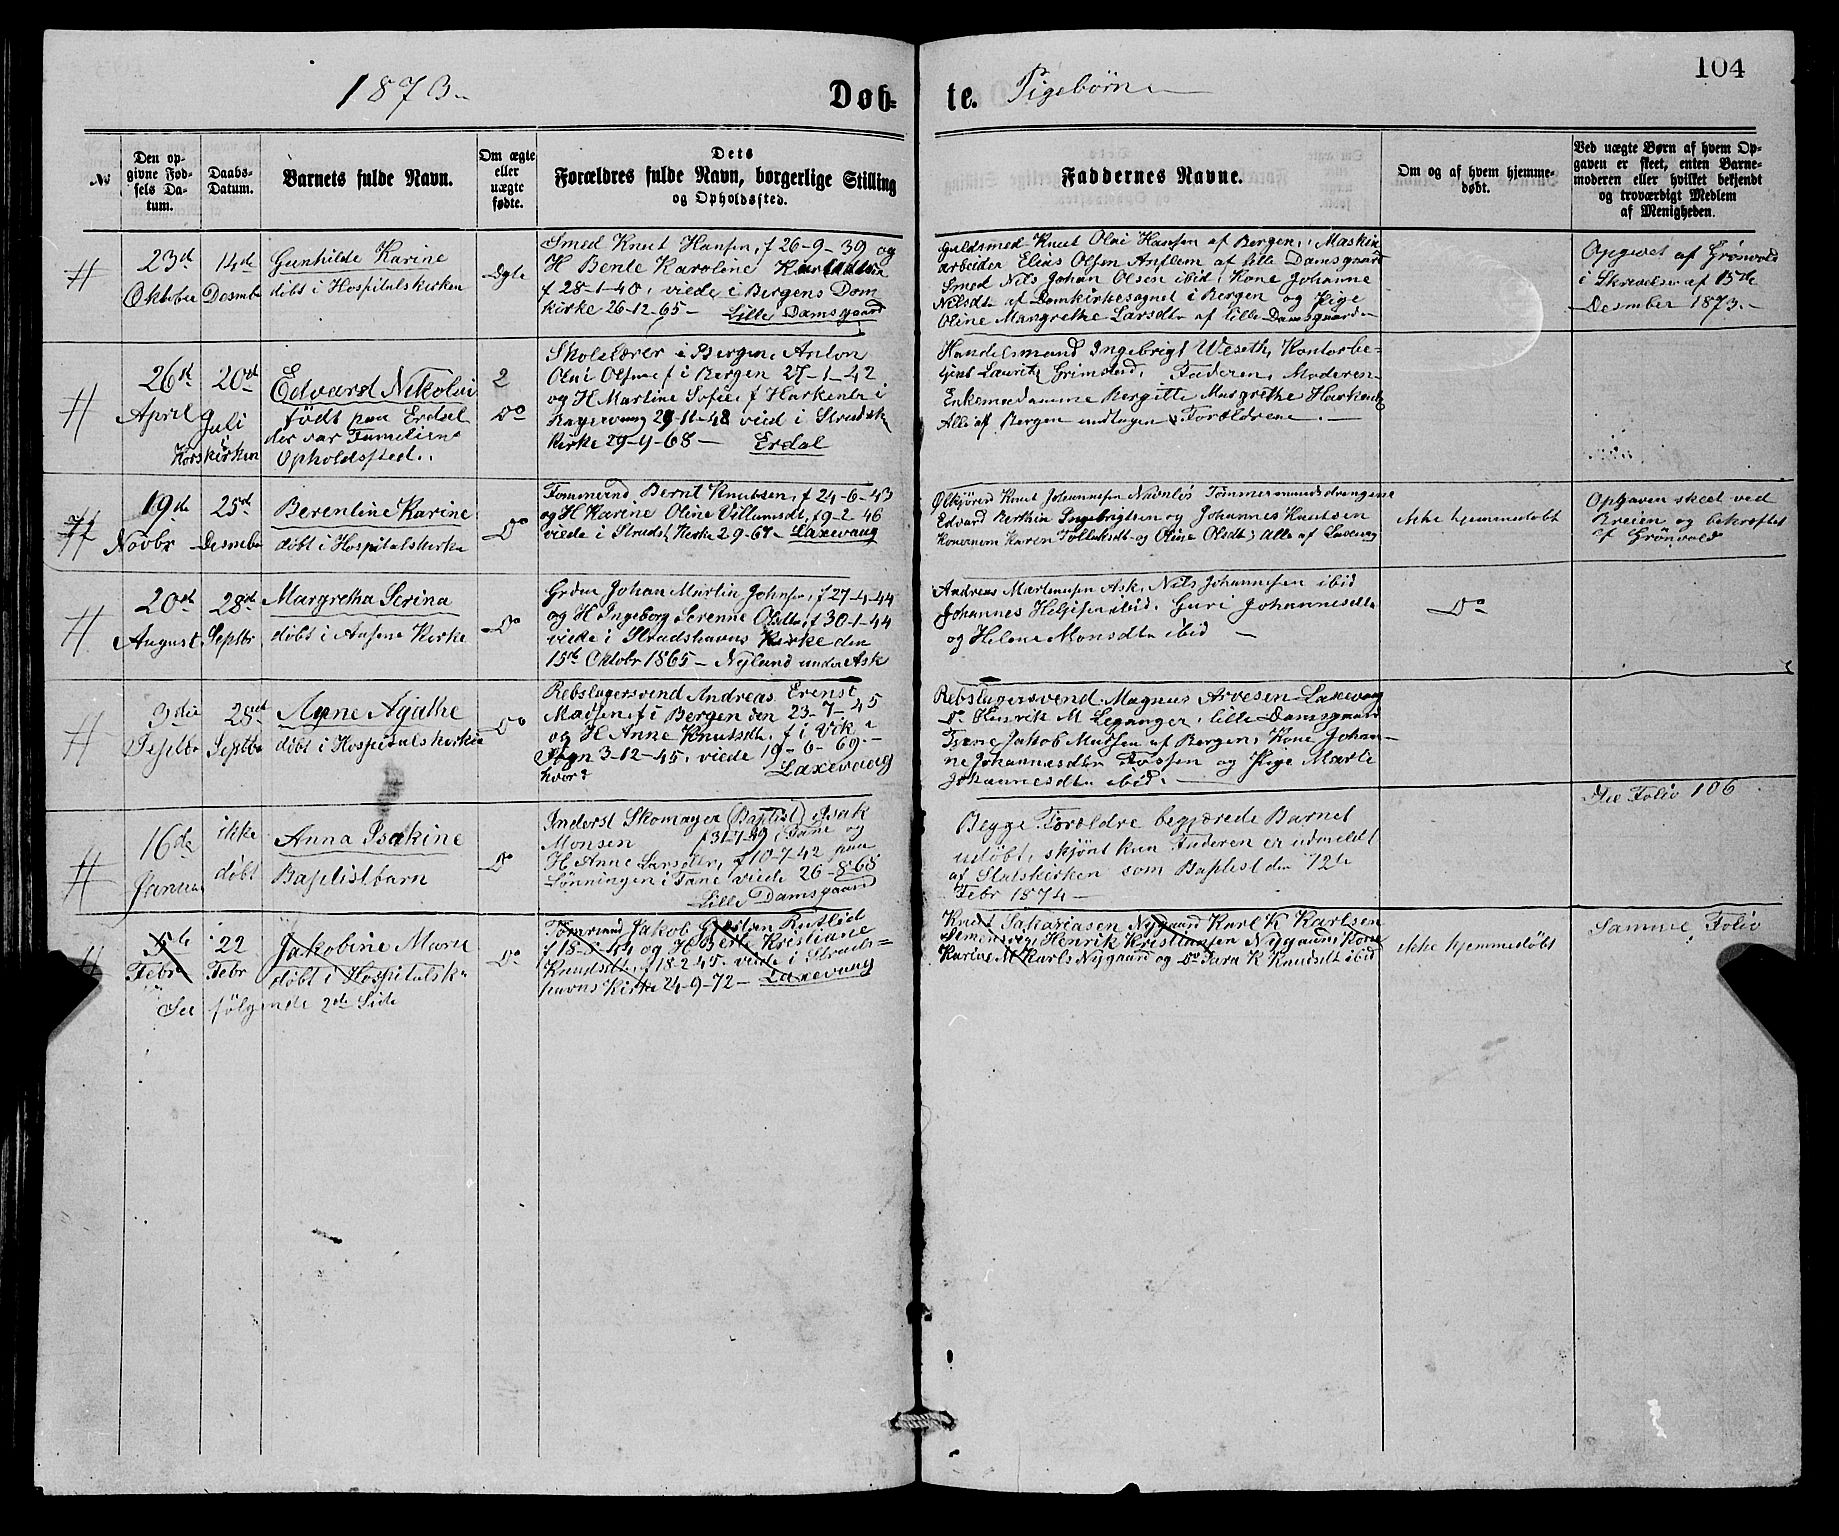 104
1873.
Døb-
te.
Pigebørn
No
Den op-
givne Fød-
sels Da-
tum.
Daabs-
Datum.
Barnets fulde Navn.
Om ægte
eller
uægte
fødte.
Dets
Forældres fulde Navn, borgerlige Stilling
og Opholdssted.
Faddernes Navne.
Om og af hvem hjemme-
døbt.
Ved uægte Børn af hvem Op-
gaven er skeet, enten Barne-
moderen eller hvilket bekjendt
og troværdigt Medlem
af Menigheden.
23d
Oktober
14d
Desmbr
Gunhilde Karine
döbt i Hospitalskirken
Ægte
Smed Knut Hansen, f 26-9-39 og
H Bente Karoline
f 28-1-40, viede i Bergens Dom
kirke 26-12-65 - Lille Damsgaard
Guldsmed Knut Olai Hansen af Bergen, Maskin
arbeider Elias Olsen af lille Damsgaard
Smed Nils Johan Olsen ibid, Kone Johanne
Nilsdt af Domkirkesognet i Bergen og Pige
Oline Margrethe Larsdtr af lille Damsgaard
Opgivet af Grönvold
i Skrivelse af 15de
Desmber 1873.
26d
April
20d
Juli
Korskirken
Edvard Nikolai
födt paa Erdal
der var Familiens
Opholdssted.
2
Do
Skolelærer i Bergen, Anton
Olai Olsen f i Bergen 27-1-42
og H Martine Sofie f Harkentz i
29-11-48 viid i Strudsh
Kirke 29-9-68 - Erdal
Handelsmand Ingebrigt Weseth, Kontorbe-
tjent Lauritz Grimstad, Faderen, Moderen
Enkemadamme Bergitte Margrethe Harkentz
Alle af Bergen undtagen Forældrene.
19de
Novbr
25d
Desmbr
Berentine Karine
döbt i Hospitalskirke
Do
Tömmermd Bernt Knutsen, f 24-6-43
og H Karine Oline Villumsdt, f 9-2 46
viede i Strudsh Kirke 2-9-67 - Laxevaag
Knut Johannesen Tömmermandsdrengene
Edvard Berthin Ingebrigtsen og Johannes Knutsen
Konernem Karen Tollaksdt og Oline Olsdt, Alle af Laxevaag
ikke hjemmedöbt
Opgaven skeet ved
Breien, og bekræftet
af Grönvold
20d
August
28d
Septbr
Margretha Serina
döbt i Askens Kirke
Do
Grdm Johan Martin Johnsen, f 27-4-44
og H Ingeborg Serenne Olsdtr, f 30-1-44
viede i Strudshavns Kirke den
15de Oktobr 1865 - Nylund under Ask
Andreas Martenusen Ask, Nils Johannesen ibid
Johannes Helgesen ibid, Guri Johannesdtr
og Helene Monsdtr ibid
Do
3die
Septbr
28d
Septbr
Agne Agathe
döbt i Hospitalskirken
Do
Rebslagersvend Andreas Erenst
Madsen, f i Bergen den 23-7-45
og H Anne Knutsdtr, f i Vik
Sogn 3-12-45, viede 19-6-69-
hvor? Laxevaag
Rebslagersvend Magnus Arvesen Laxevaag
Do Henrik M Leganger, lille Damsgaard
Jakob Madsen af Bergen, Kone Johan-
ne Johannesdtr Fossen og Pige Marti
Johannesdtr ibid.
16de
Januar
ikke
döbt
Anna Isakine
Baptistbarn
Do
Inderst Skomager (Baptist) Isak
Monsen f 31-7-39 i Fane og
H Anne Larsdtr, f 10-7-42 paa
Lönningen i Fane viede 26-8-68
Lille Damsgaard
Begge Forældre begjærede Barnet
udöbt, skjönt kun Faderen er udmeldt
af Statskirken som Baptist den 12te
Febr 1874 -
See Folio 106
5te
Febr
22
Febr
Jakobine Marie
döbt i Hospitalsk
Do
Tömrmd Jakob Rutlid
f 18-8-49 og H Berte Kristiane
Knudsdtr, f 18-2-45. viede i Struds-
havns Kirke 24-9-72 - Laxevaag
Knut Sakariasen Nygaard Karl K Karlsen
Simensvig Henrik Kristiansen Nygaard, Kone
Karine M Karls Nygaard og Do Sara K Knudsdt ibid
ikke hjemmedöbt
Samme Folio
See fölgende 2de Side